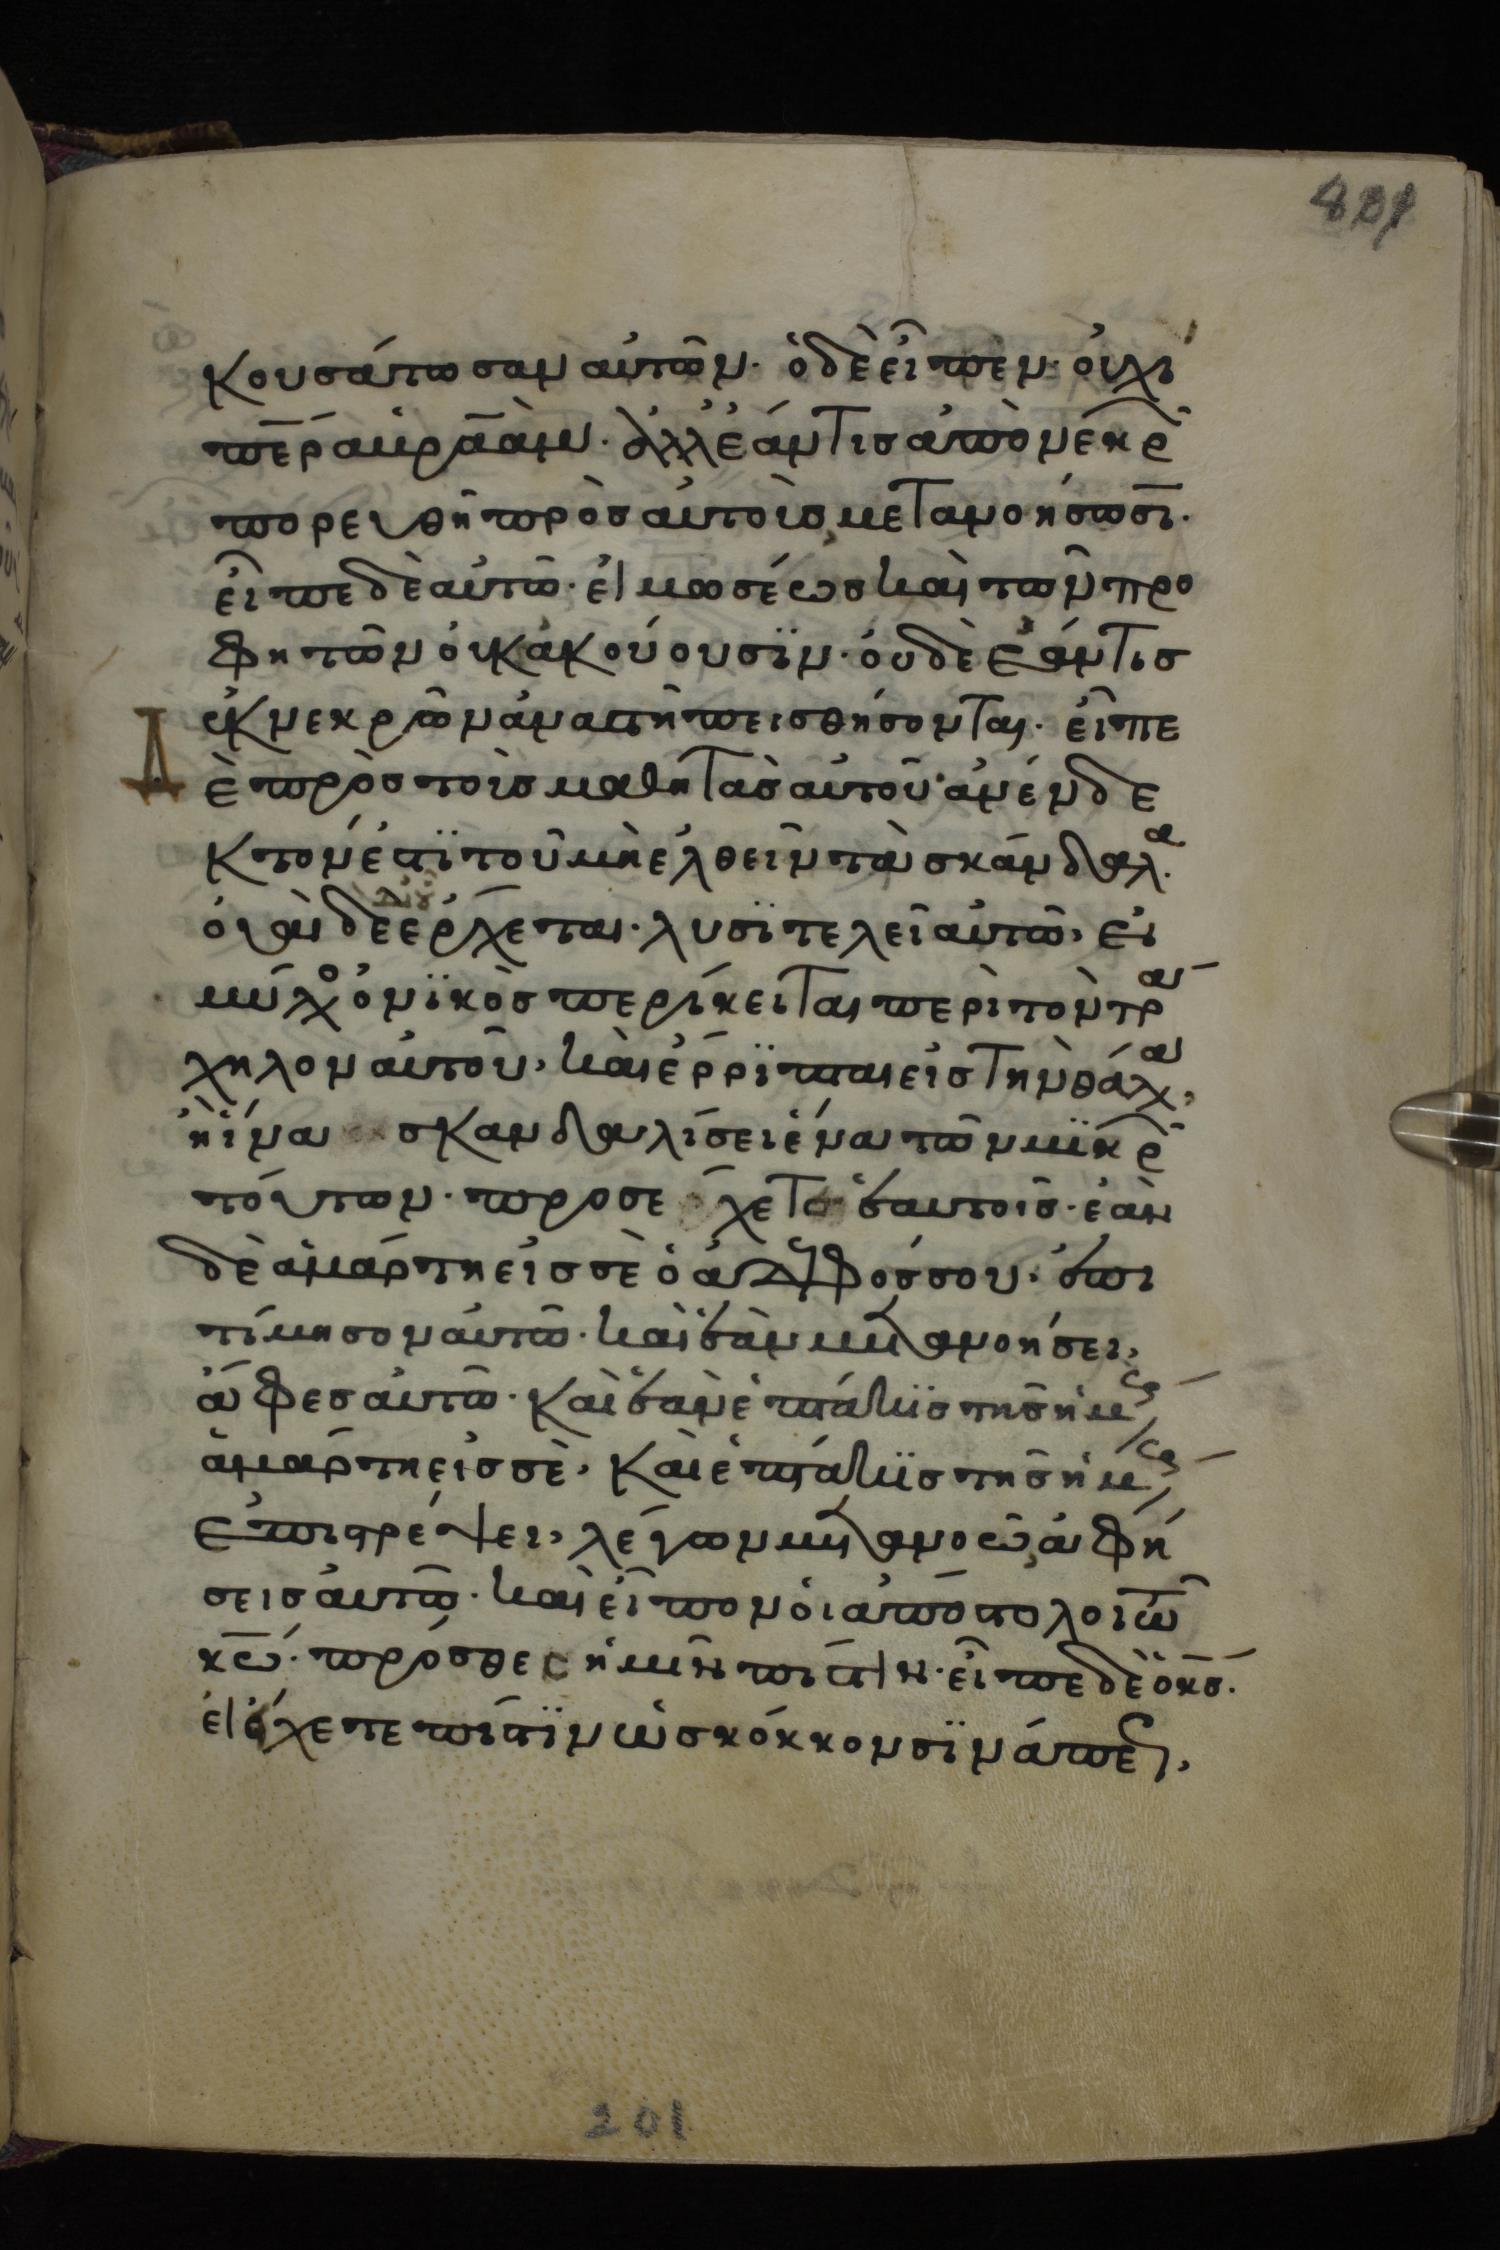 κουσάτωσαν αὐτῶν· ὁ δὲ εἶπεν· οὐχὶ
πε̅ρ ἀβρα̅ὰμ· ἀλλ' ἐάν τις ἀπὸ νεκρ̅
πορευθῆ πρὸς αὐτοὺς μετανοήσωσι·
εἶπε δὲ αὐτῶ· εἰ μωσέως καὶ τῶν προ
φητῶν οὐκ ἀκούουσϊν· οὐδὲ ἐάν τις
ἐκ νεκρῶν ἀναστῆ πεισθήσονται· εἶπε
Δὲ πρὸς τοὺς μαθητὰς αὐτοῦ· ἀνένδε
κτον ἐστϊ τοῦ μὴ ἐλθεῖν τὰ σκάνδαλα·
οὐαὶ δὲ δι' οὗ ἔρχεται· λυσϊτελεῖ αὐτῶ, εἰ
μύλος ὀνϊκὸς περίκειται περὶ τὸν τρα
χηλον αὐτοῦ, καὶ ἔρρϊπται εἰς τὴν θάλα,
ἢ ἵνα σκανδαλίσει ἕνα τῶν μϊκρ̅
τούτων· προσέχετε ἑαυτοῖς· ἐὰν
δὲ ἁμάρτη εἰς σὲ ὁ ἀδελφός σου, ἐπι
τίμησον αὐτῶ· καὶ ἐὰν μετανοήσει,
ἄφες αὐτῶ· καὶ ἐὰν ἑπτάκϊς τῆς ἡμερ
ἁμάρτη εἰς σὲ, καὶ ἑπτάκϊς τῆς ἡμερ
ἐπιστρέψει, λέγων μετανοῶ, ἀφή
σεις αὐτῶ· καὶ εἶπον οἱ ἀπόστολοι τῶ
κ̅ω· πρόσθες ἡμῖν πίστιν· εἶπε δὲ ὁ κ̅ς·
εἰ ἔχετε πίστϊν ὡς κόκκον σϊνάπεως,
801
201